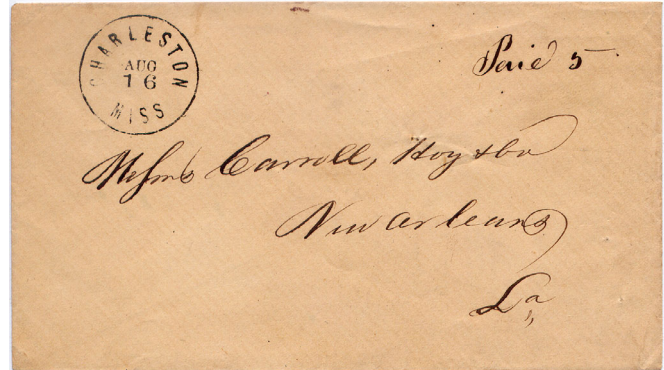 CHARLESTON
AUG
16
MISS
Paid 5
Messrs Carroll, Hoy & Co
New Orleans
La